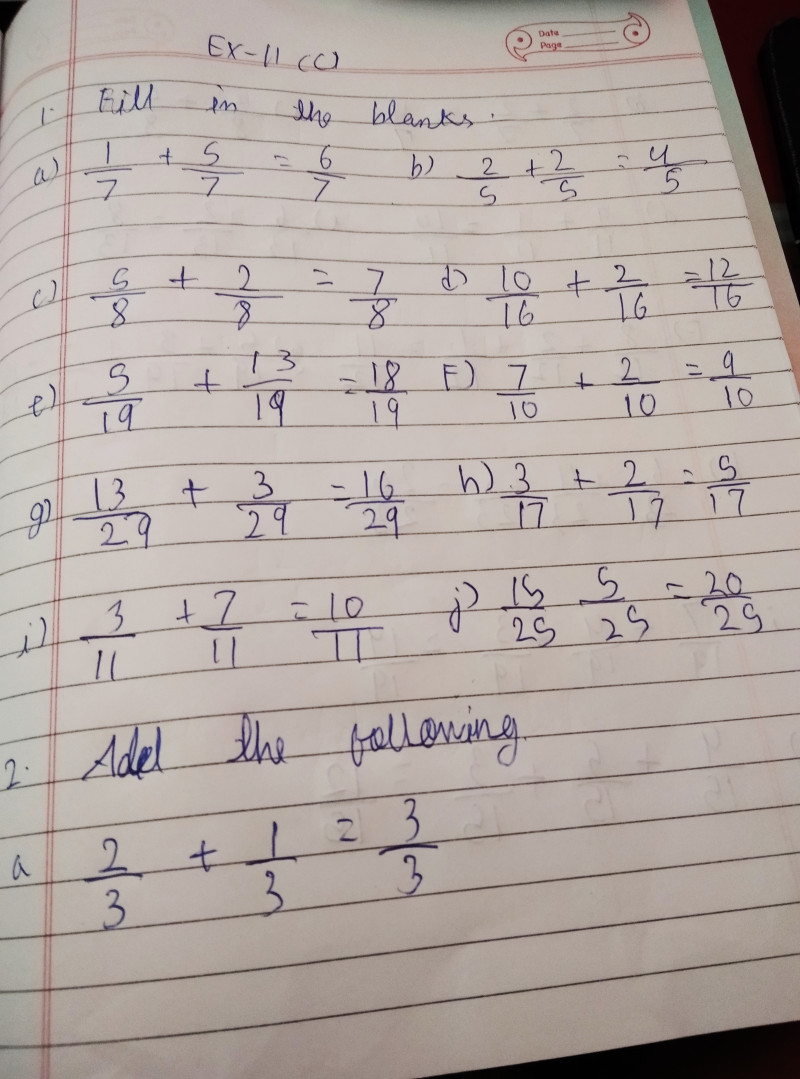 Date
Page
EX-11 (C)
1. Fill in the blanks.
a) 1/7 + 5/7 = 6/7 b) 2/5 + 2/5 = 4/5
c) 5/8 + 2/8 = 7/8 d) 10/16 + 2/16 = 12/16
e) 5/19 + 13/19 = 18/19 F) 7/10 + 2/10 = 9/10
g) 13/29 + 3/29 = 16/29 h) 3/17 + 2/17 = 5/17
i) 3/11 + 7/11 = 10/11 j) 15/25 5/25 = 20/25
2. Add the following.
a 2/3 + 1/3 = 3/3